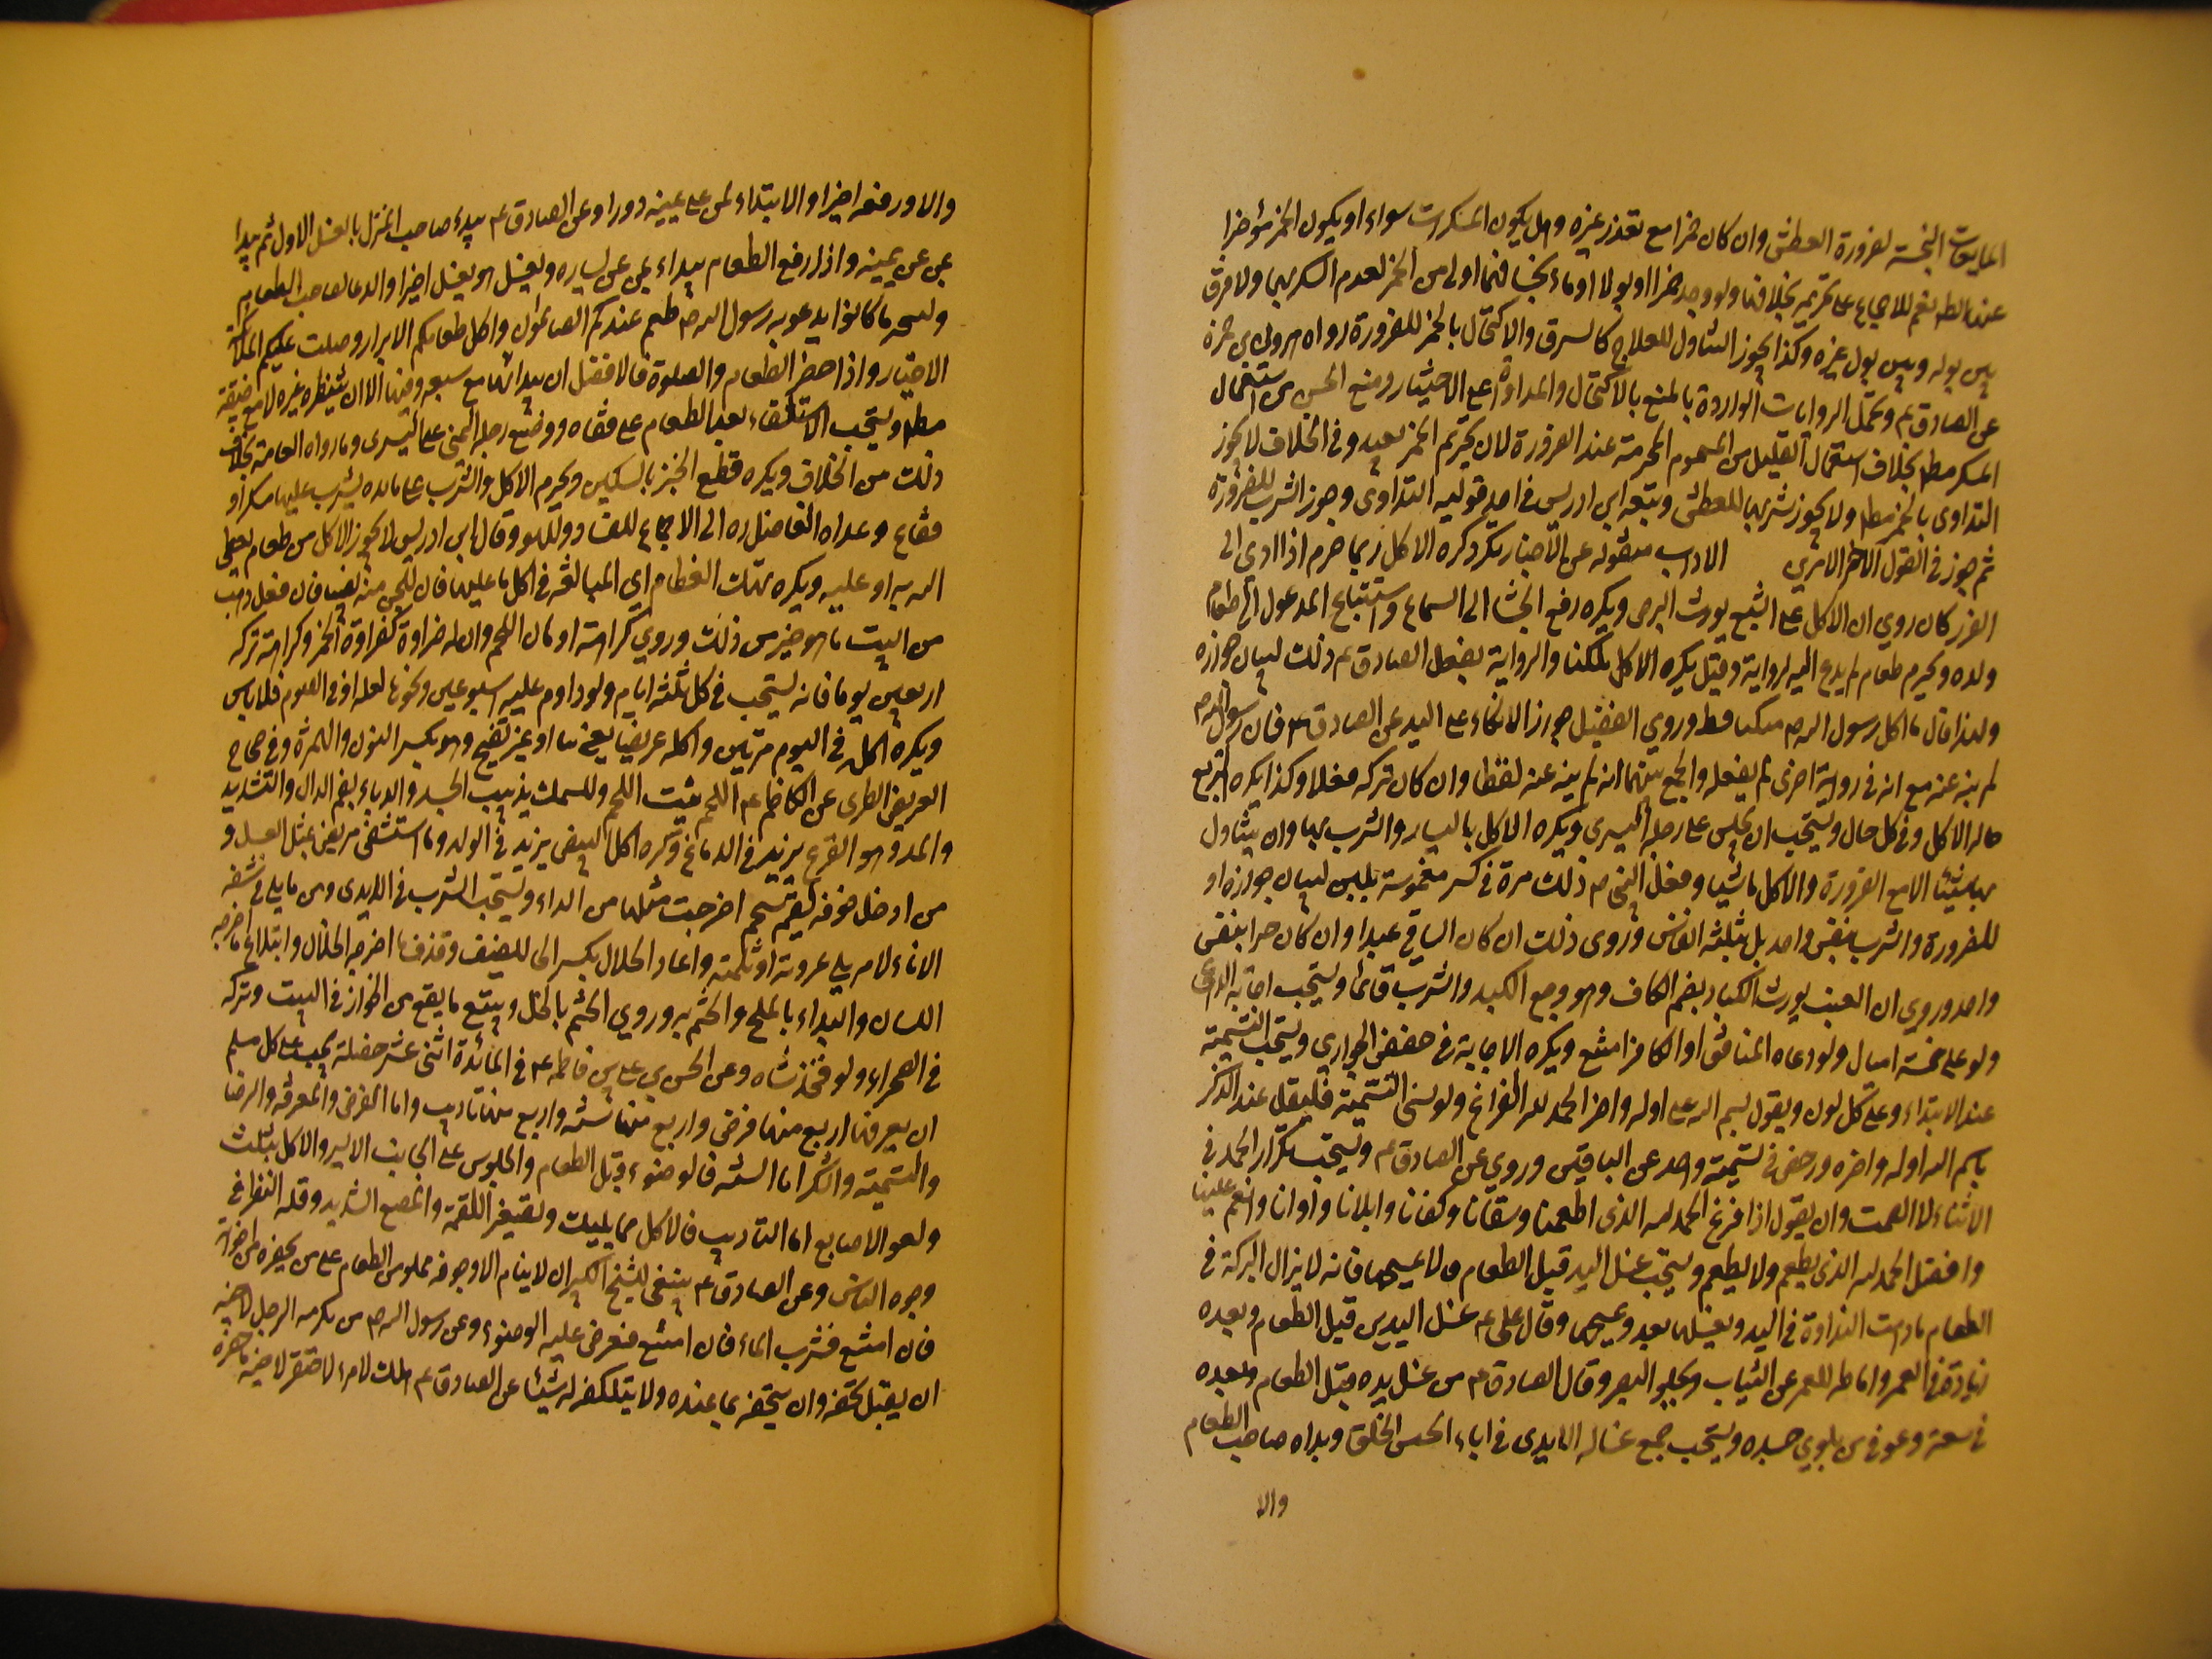 المايعات النجسة لضرورة العطش وان كان خمرا مع تعذر غيره وهل يكون المسكرات سواء او يكون الخمر مؤخرا
عنها الظ نعم للاجماع على تحريمه بخلافها ولو وجد خمرا او بولا او ماء نجسا فهما اولى من الخمر لعدم السكر بهما ولا فرق
بين بوله وبين بول غيره وكذا يجوز التناول للعلاج كالسرق والاكتحال بالخمر للضرورة رواه هرون بن حمزه
عن الصادق عم وتحمل الروايات الواردة بالمنع بالاكتحال والمداواة على الاختيار ومنع الحسن من استعمال
المسكر مطلقا بخلاف استعمال القليل من السموم المحرمة عند الضرورة لان تحريم الخمر تعبد وفي الخلاف لا يجوز
التداوي بالخمر مطلقا ولا يجوز شربها للعطش وتبعه ابن ادريس في احد قوليه التداوى وجوز الشرب للضرورة
ثم جوز في القول الاخر الامرين الادب منقوله عن الاخبار يكره كثرة الاكل وربما حرم اذا ادى الى
الضرر كان روي ان الاكل على الشبع يورث البرص ويكره رفع الجشا الى السماء واستتباع المدعو الى طعام
ولده ويحرم طعام لم يدع اليه لرواية وقيل يكره الاكل متكئا والرواية بفعل الصادق عم ذلك لبيان جوازه
ولهذا قال ما اكل رسول الله ص متكئا قط وروي الفضيل جواز الاتكاء على اليد عن الصادق عم فان رسول الله ص
لم ينه عنه مع انه في رواية اخرى لم يفعله والجمع بينهما انه لم ينه عنه لفظا وان كان تركه فعلا وكذا يكره التربع
حاله الاكل وفي كل حال ويستحب ان يجلس على رجله اليسرى ويكره الاكل باليسار والشرب بها وان يتناول
بها شيئا الا مع الضرورة والاكل ماشيا وفعل النبي ص ذلك مرة في كسر مغموسة بلبن لبيان جوازه او
للضرورة والشرب بنفس واحد بل بثلثة انفاس وروى ذلك ان كان الساقي عبدا وان كان حرا بنفس
واحد وروي ان العب يورث الكباد بضم الكاف وهو وجع الكبد والشرب قائما ويستحب اجابة الداعي
ولو على خمسة اميال ولو دعاه المنافق او الكافر امتنع ويكره الاجابة في خفض الجواري ويستحب التسمية
عند الابتداء وعلى كل لون ويقول بسم الله على اوله واخره الحمد لله الفراغ ولو نسى التسمية فليقل عند الذكر
باسم الله اوله واخره ورخص في تسمية واحد عن الباقين وروي عن الصادق عم ويستحب تكرار الحمد في
الاثناء لا الصمت وان يقول اذا فرغ الحمد لله الذي اطعمنا وسقانا وكفانا وابلانا واوانا وانعم علينا
وافضل الحمد لله الذي يطعم ولا يطعم ويستحب غسل اليد قبل الطعام ولا يمسحها فانه لا يزال البركة في
الطعام مادامت النداوة في اليد ويغسلها بعد ويمسحها وقال علي عم غسل اليدين قبل الطعام وبعده
زيادة في العمر واماطه للغمر عن الثياب ويجلو البصر وقال الصادق عم من غسل يده قبل الطعام وبعده
في سعة وعوفي من بلوي جسده ويستحب جمع غساله الايدي في اناء لحسن الخلق وبداه صاحب الطعام
والا
والا ورفعه اخيرا والابتداء لمن على يمينه دورا وعن الصادق عم يبدء صاحب المنزل بالغسل الاول ثم يبدأ
بمن عن يمينه واذا رفع الطعام يبداء بمن عن يساره ويغسل هو اخيرا والدعا لصاحب الطعام
وليتحر ما كانوا يدعو به رسول الله ص طعم عندكم الصائمون واكل طعامكم الابرار وصلت عليكم الملائكة
الاخيار واذا حضر الطعام والصلوة فالافضل ان يبدا بها مع سعه وقتها الا ان ينتظره غيره لا مع ضيقه
مطلقا ويستحب الاستلقاء بعد الطعام على قفاه ووضع رجله اليمنى على اليسرى وما رواه العامة بخلاف
ذلك من الخلاف ويكره قطع الخبز بالسكين ويحرم الاكل والشرب على مائده يشرب عليها مسكر او
فقاع وعداه الفاضل ره الى الاجتماع للفساد واللهو وقال ابن ادريس لا يجوز الاكل من طعام يعصى
الله به او عليه ويكره نهك العظام اي المبالغه في اكل ما عليها فان للجن منه نصيبا فان فعل ذهب
من البيت ما هو خير من ذلك وروي كراهة ادمان اللحم وان له ضراوة كضراوة الخمر وكراهة تركه
اربعين يوما فانه يستحب في كل ثلثة ايام ولو داوم عليه اسبوعين ونحوها لعله او في الصوم فلا باس
ويكره اكله في اليوم مرتين واكله غريضا يعني نيا او غير نضيج وهو بكسر النون والهمزة وفي صحاح
الغريض الطرى عن الكاظم عم اللحم ينبت اللحم والسمك يذيب الجسد والدباء بضم الدال والتشديد
والمد وهو القرع يزيد في الدماغ وكثره اكل البيض يزيد في الولد وما استشفى مريض بمثل العسل و
من ادخل جوفه لقمة شحم اخرجت مثلها من الداء ويستحب الشرب في الايدي ومن ما يلي في شفه
الاناء لا مما يلي عروته او ثلمته واعداد الخلال بكسر الخا للضيف وقذف ما اخرجه الخلال وابتلاع ما اخرجه
اللسان والبداء بالملح والختم به وروي الختم بالخل ويتبع ما يقع من الخوان في البيت وتركه
في الصحراء ولو فخذ شاه وعن الحسن بن علي بن فاطمه عم في المائدة اثنى عشر خصلة يجب على كل مسلم
ان يعرفها اربع منها فرض واربع منها سنه واربع منها تاديب واما الفرض والمعرفه والرضا
والتسمية والشكر اما السنه فالوضوء قبل الطعام والجلوس على الجانب الايسر والاكل بثلث
ولعق الاصابع اما التاديب فالاكل مما يليك وتصغير اللقمة والمضغ الشديد وقله النظر في
وجوه الناس وعن الصادق عم ينبغي للشيخ الكبير ان لا ينام الا وجوفه مملو من الطعام على من يحضره
فان امتنع فشرب الماء فان امتنع فيعرض عليه الوضوء وعن رسول الله ص من تكرمه الرجل لاخيه
ان يقبل تحفته وان يتحفه بما عنده ولا يتكلف له شيئا عن الصادق عم هلك لامرء احتقر لاخيه ما حضره